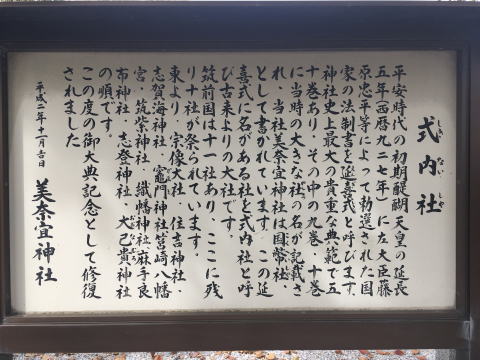 式内社
しき ない しゃ
平安時代の初期醍醐天皇の延長
五年(西暦九二七年)に左大臣藤
原忠平等によって勅選された国
家の法制書を延喜式と呼びます。
神社史上最大の貴重な典範で五
十巻あり、その中の九巻、十巻
に当時の大きな社の名が記載さ
れ、当社美奈宜神社は国幣社、
として書かれています。この延
喜式に名がある社を式内社と呼
び古来よりの大社です。
筑前国は十一社あり、ここに残
り十社が祭られています。
東より、宗像大社、住吉神社、
志賀海神社、竈門神社筥崎八幡
宮、筑紫神社、織幡神社麻手良
布神社、志登神社、大己貴神社
の順です。
この度の御大典記念として修復
されました
平成二年十一月吉日
美奈宜神社